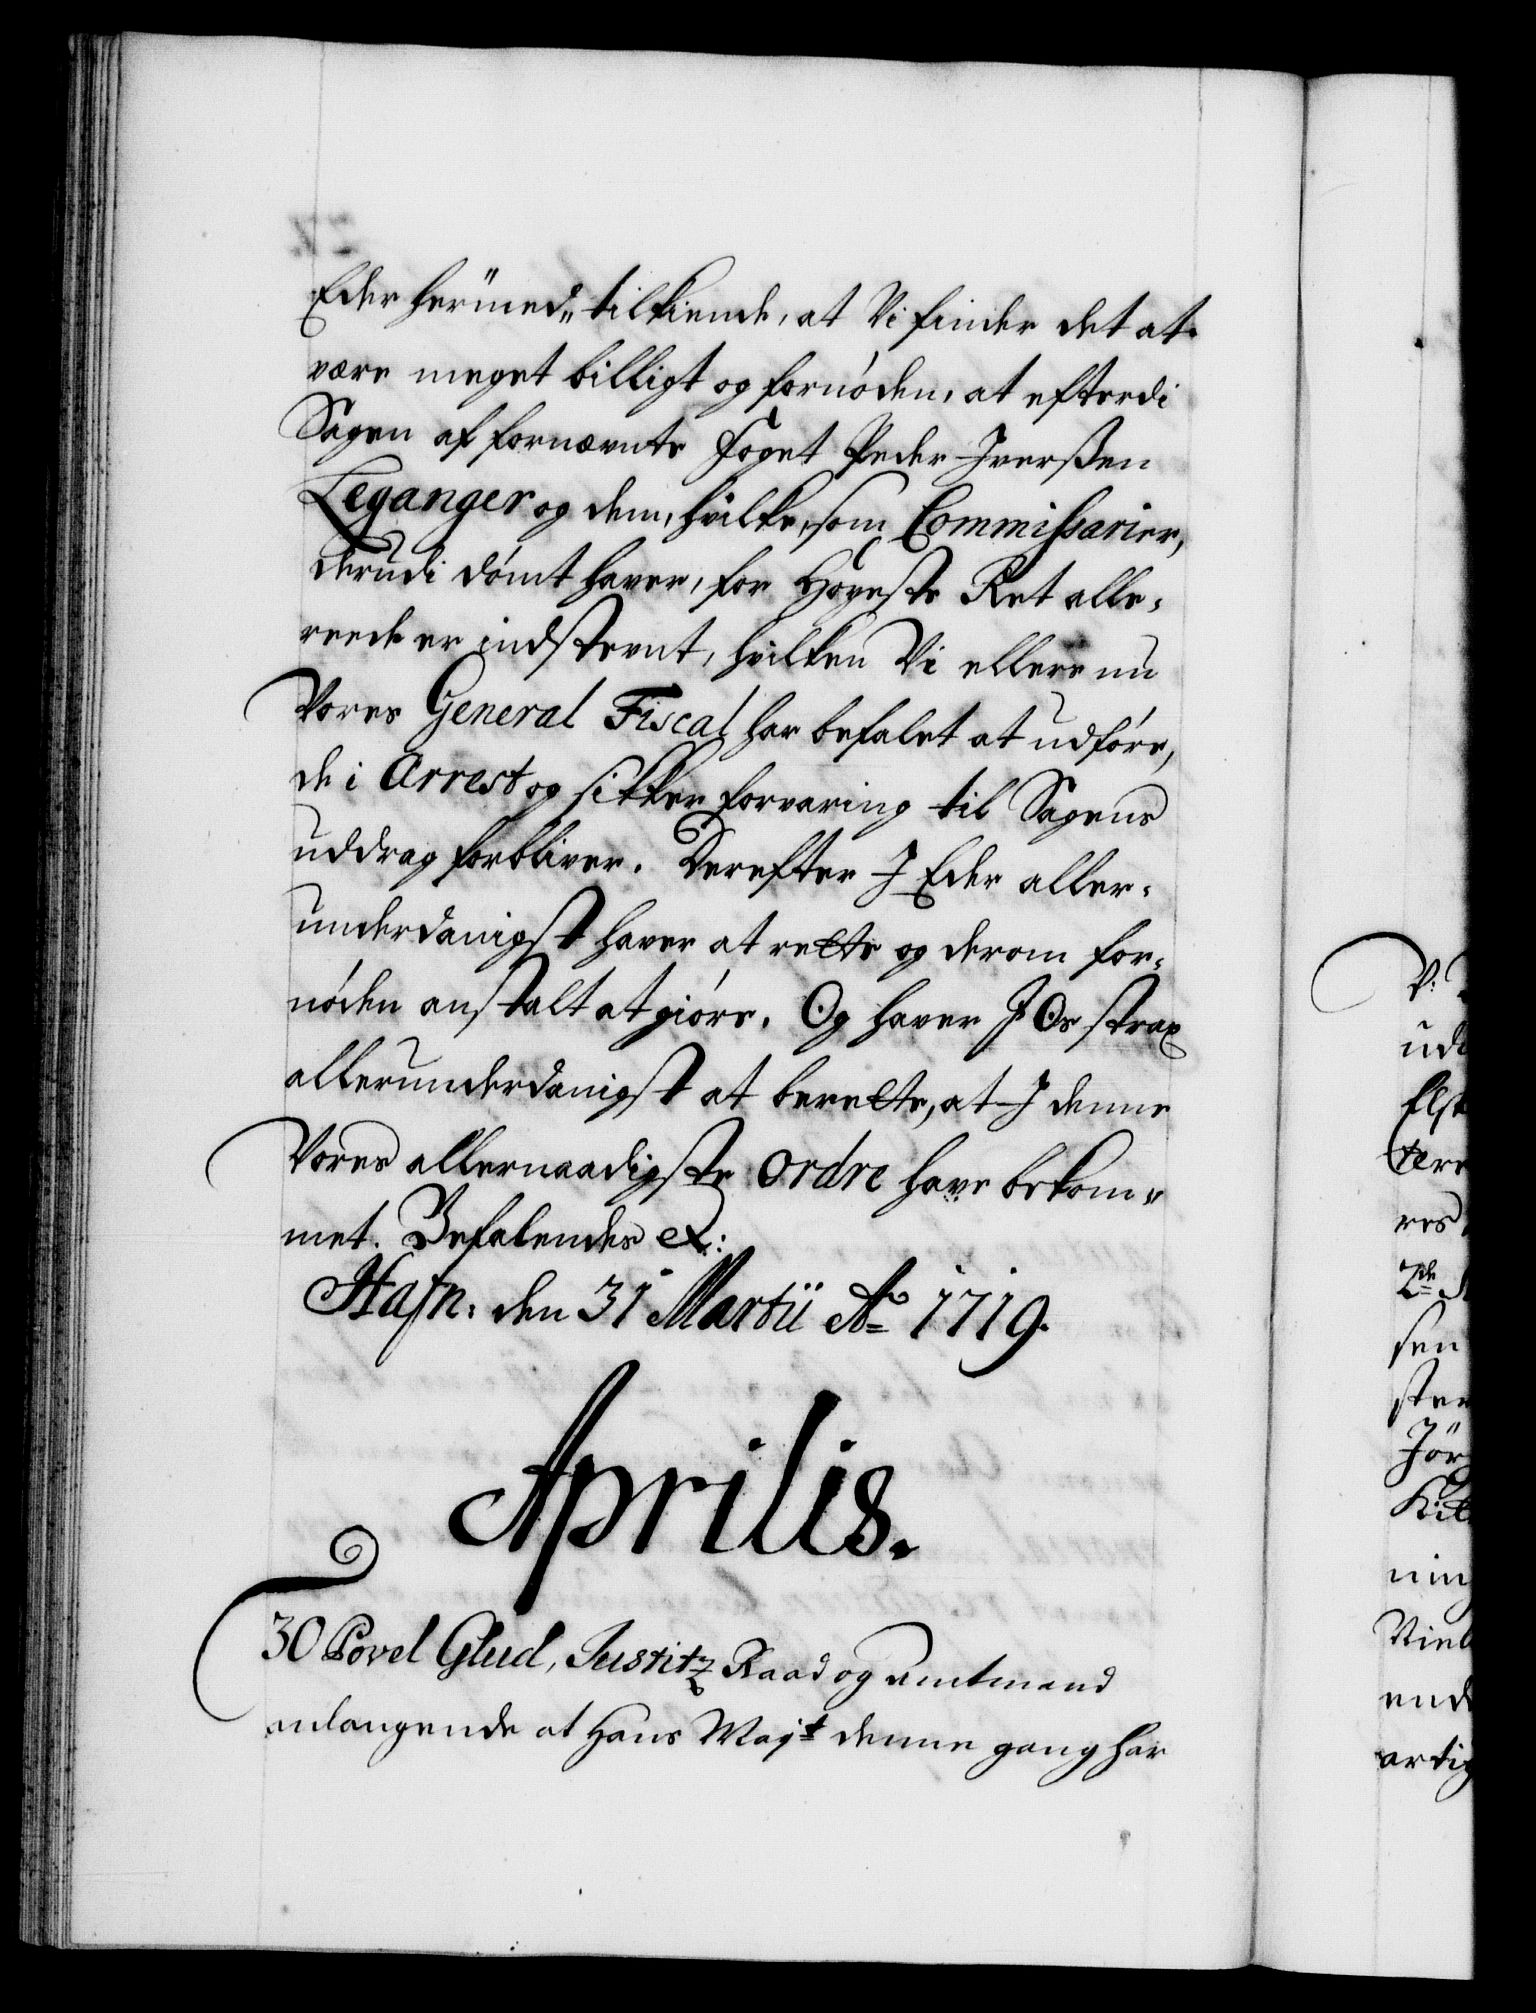 Eder hermed tilkiende, at Vi finder det at
være meget billigt og fornøden, at efterdi
Sagen af fornævnte Foget Peder Iverssen
Leganger og dem, hvilke, som Commissarier,
derudi dømt haver, for Højeste Ret alle-
reede er indstevnt, hvilken Vi ellers nu
Vores General Fiscal har befalet at udføre,
de i Arrest og sikker forvaring til Sagens
uddrag forbliver. Derefter I Eder aller-
underdanigst haver at rette og derom for-
nøden anstalt at giøre. Og haver I Os strax
allerunderdanigst at berette, at I denne
Vores allernaadigste ordre have bekom-
met. Befalendes &:
Hafn: den 31 Martii Ao 1719.
Aprilis.
30 Povel Glud, Justitz Raad og amtmand
anlangende at Hans Majt denne gang har
V:
udi
Elsk
res
2de
sen
ster
Jör
nin
ende
artig